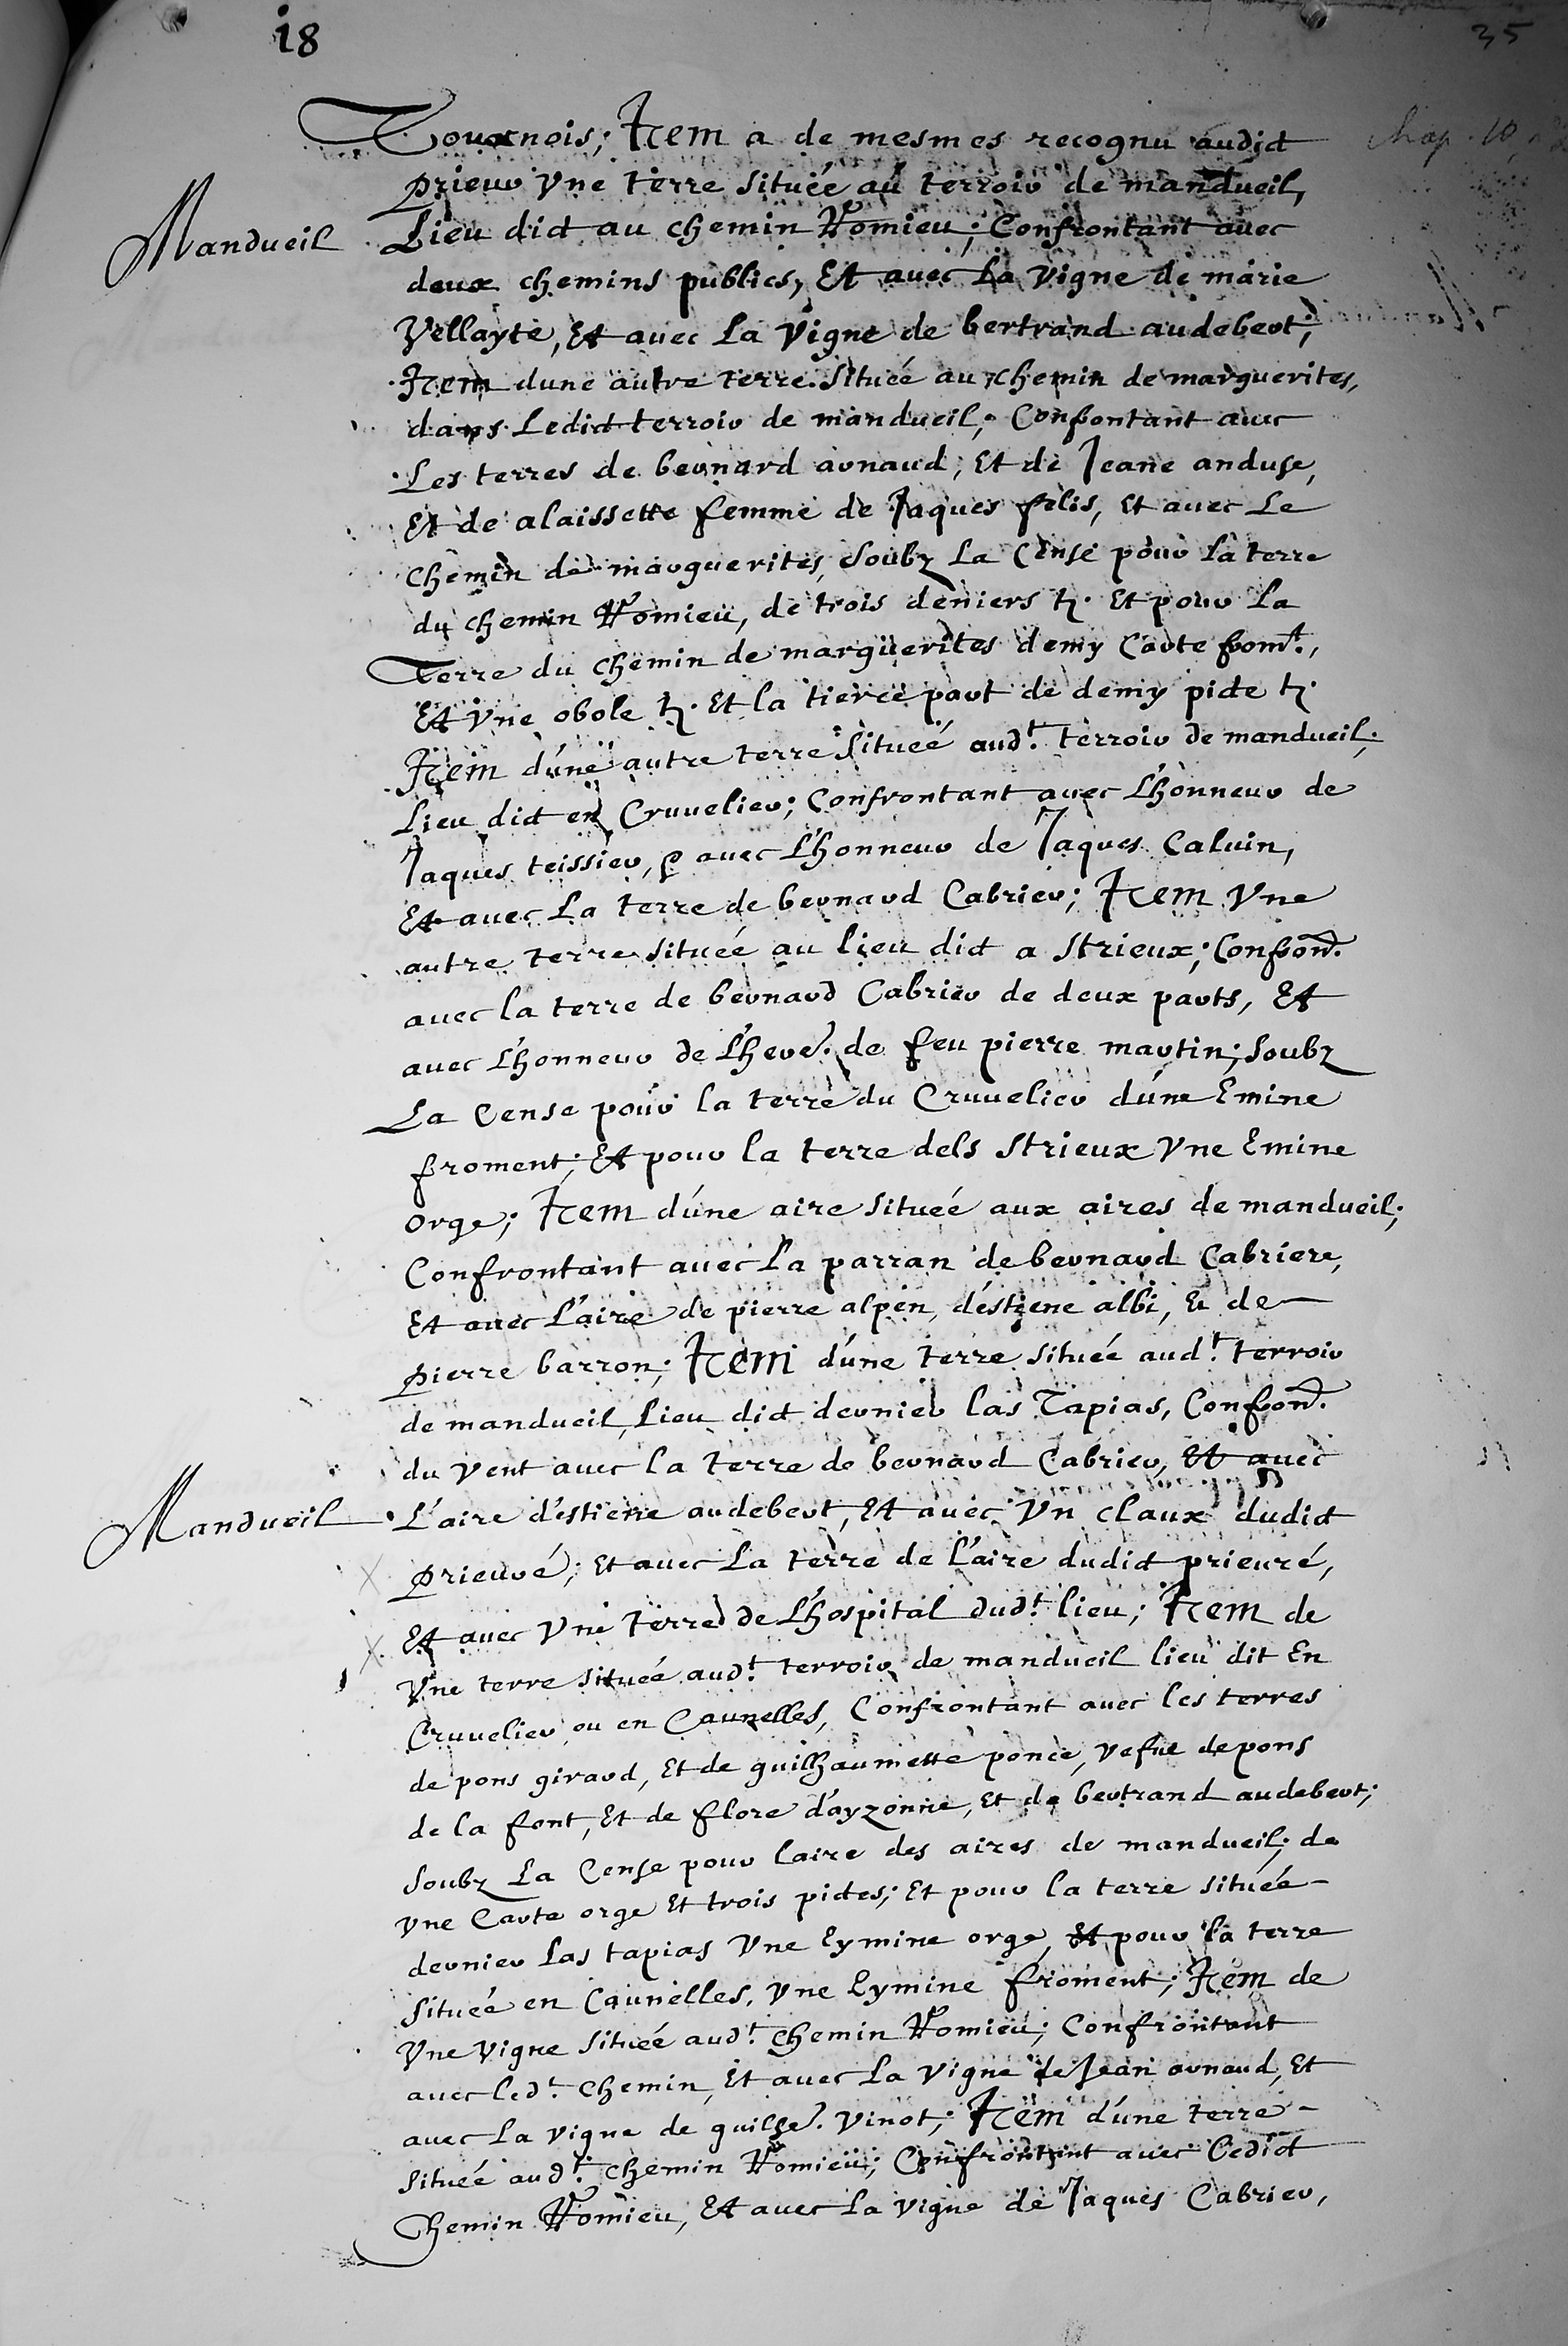 18
35
chap. 10,
Tournois; Item a de mesmes recognu audict
prieur Vne terre située au terroir de mandueil,
Mandueil
Lieu dict au chemin Romieu; Confrontant auec
deux chemins publics, Et auec La Vigne de marie
Vellayte, Et auec La Vigne de bertrand audebert;
Item dune autre terre située au chemin de marguerites,
dans Ledict terroir de mandueil; Confrontant auec
Les terres de bernard arnaud; Et de Jeane anduse,
Et de alaissette femme de Jaques felis, Et auec Le
Chemin de marguerites, soubz La Cense pour la terre
du chemin Romieu, de trois deniers tz. Et pour La
Terre du chemin de marguerites demy Carte fromt.,
Et Vne obole tz. Et la tierce part de demy picte tz.
Item d'une autre terre située audt. terroir de mandueil;
Lieu dict en Cruuelier; Confrontant auec L'honneur de
Jaques teissier, & auec L'honneur de Jaques Caluin,
Et auec La terre de bernard Cabrier; Item Vne
autre terre située au lieu dict a Strieux; Confrond.
auec la terre de bernard Cabrier de deux parts, Et
auec L'honneur de L'here. de feu pierre martin; soubz
La Cense pour la terre du Cruuelier d'une Emine
froment; Et pour la terre dels Strieux Vne Emine
orge; Item d'une aire située aux aires de mandueil;
Confrontant auec La parran de bernard Cabriere,
Et auec L'aire de pierre alpen, d'estiene albi, & de
pierre barron; Item d'une terre située audt. terroir
de mandueil, Lieu dict dernier las Tapias, Confrond.
du Vent auec la terre de bernard Cabrier, Et auec
Mandueil
L'aire d'estiene audebert, Et auec Vn claux dudict
prieuré; Et auec La terre de l'aire dudict prieuré,
Et auec Vne terre de L'hospital dudt. lieu; Item de
Vne terre située audt. terroir de mandueil lieu dit En
Cruuelier ou en Caunelles, Confrontant auec les terres
de pons girard, Et de guilhaumette ponce, vefue de pons
de la font, Et de flore d'ayzonne, Et de bertrand audebert;
soubz La Cense pour laire des aires de mandueil; de
vne Carte orge Et trois pictes; Et pour la terre située
dernier Las tapias Vne Eymine orge, Et pour la terre
située en Caunelles, Vne Eymine froment; Item de
Vne Vigne située audt. chemin Romieu; Confrontant
auec ledt. chemin, Et auec La Vigne de Jean arnaud, Et
auec La vigne de guilhe. Vinot; Item d'une terre
située audt. chemin Romieu; Confrontant auec Ledict
Chemin Romieu, Et auec La vigne de Jaques Cabrier,